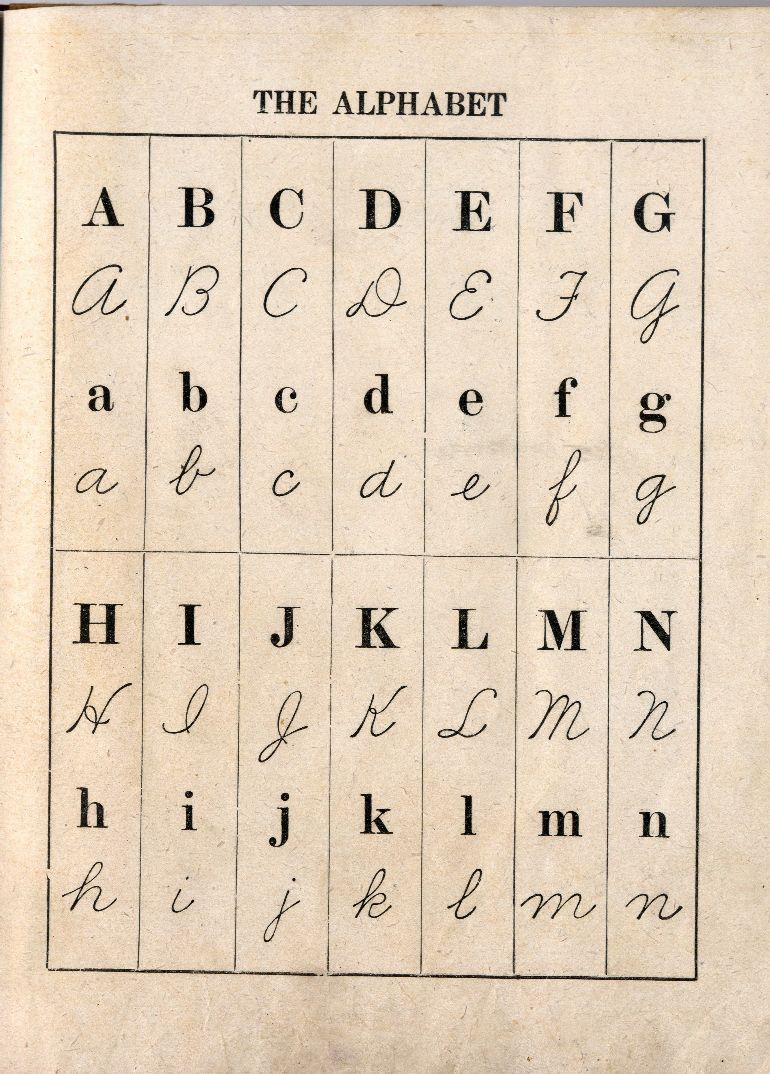 THE ALPHABET
A B C D E F G
A B C D E F G
a b c d e f g
a b c d e f g
H I J K L M N
H I J K L M N
h i j k l m n
h i j k l m n